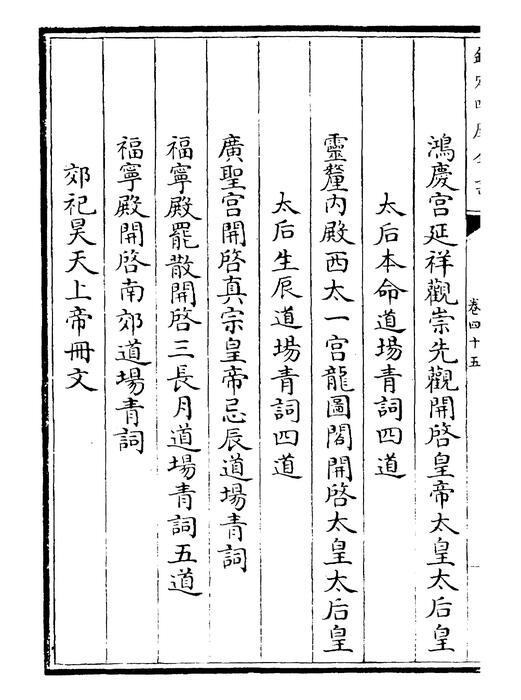 欽定四庫全書
卷四十五
鴻慶宫延祥觀崇先觀開啓皇帝太皇太后皇
太后本命道場青詞四道
靈釐内殿西太一宫龍圖閣開啓太皇太后皇
太后生辰道場青詞四道
廣聖宫開啓真宗皇帝忌辰道場青詞
福寧殿罷散開啓三長月道場青詞五道
福寧殿開啓南郊道場青詞
郊祀昊天上帝冊文